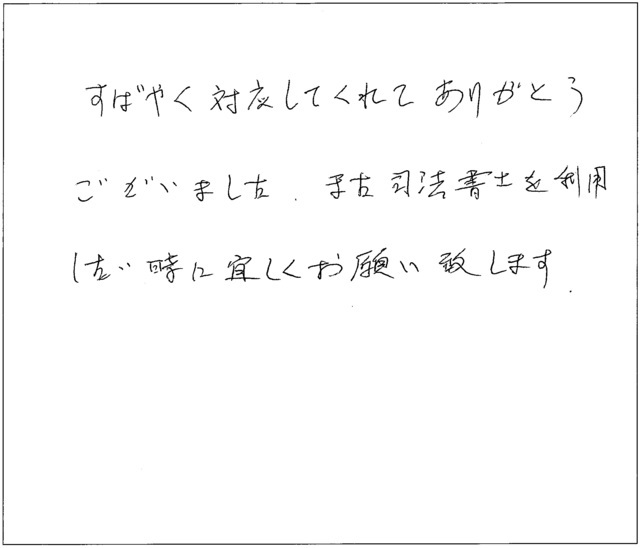 すばやく対応してくれてありがとう
ございました. また司法書士を利用
したい時に宜しくお願い致します.